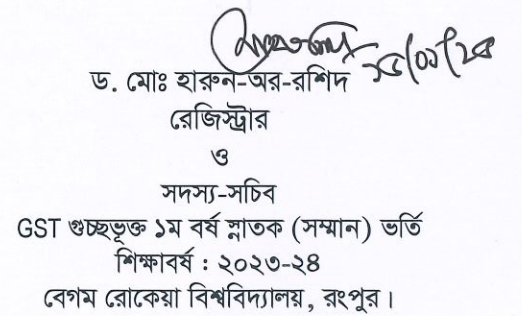 ড. মোঃ হারুন-অর-রশিদ
রেজিস্ট্রার
ও
সদস্য-সচিব
GST গুচ্ছভূক্ত ১ম বর্ষ স্নাতক (সম্মান) ভর্তি
শিক্ষাবর্ষ : ২০২৩-২৪
বেগম রোকেয়া বিশ্ববিদ্যালয়, রংপুর।